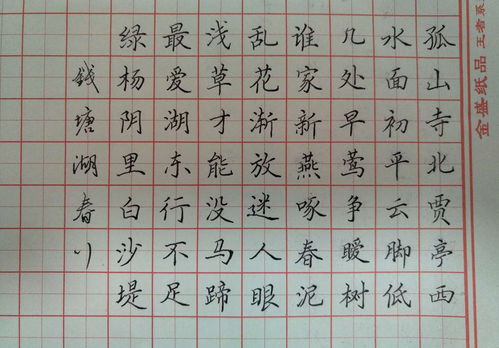 金盛纸品 王者系
孤山寺北贾亭西
水面初平云脚低
几处早莺争暖树
谁家新燕啄春泥
乱花渐放迷人眼
浅草才能没马蹄
最爱湖东行不足
绿杨阴里白沙堤
錢塘湖春行